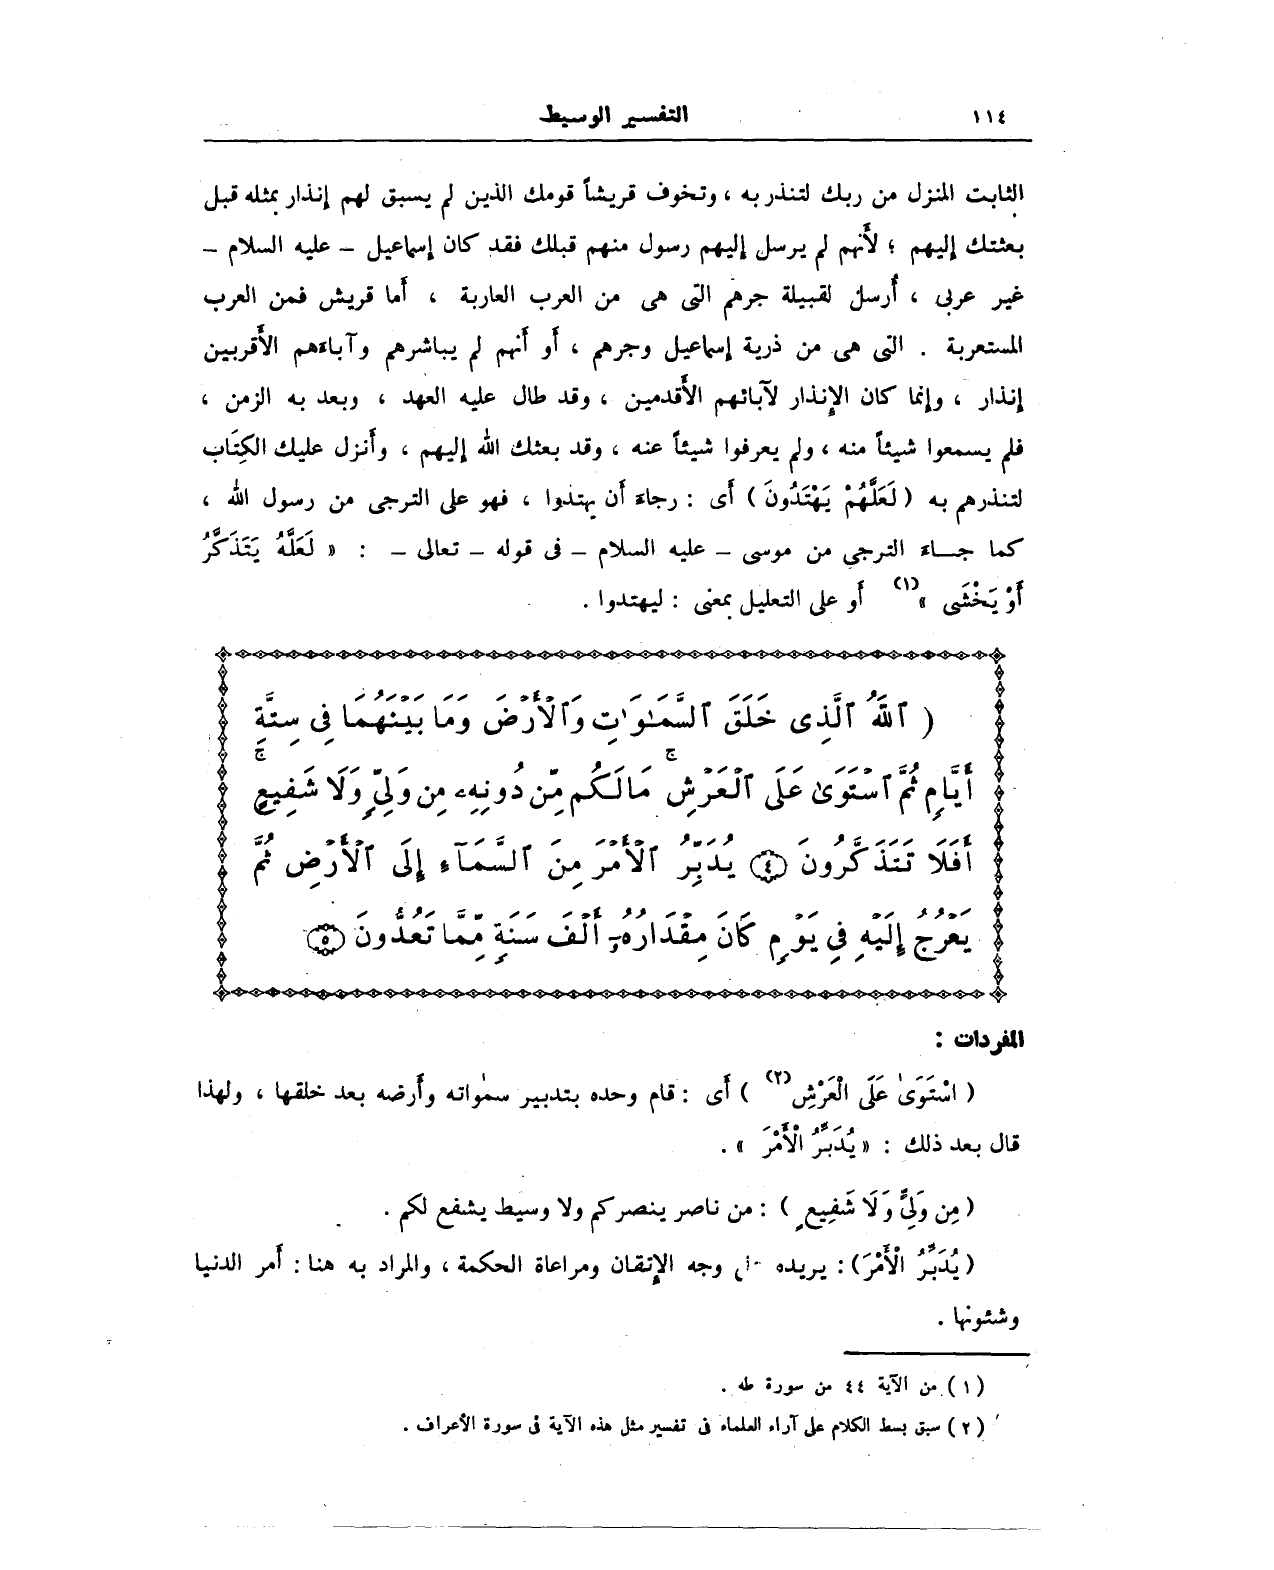 ١١٤
التفسير الوسيط
الثابت المنزل من ربك لتنذر به ، وتخوف قريشاً قومك الذين لم يسبق لهم إنذار بمثله قبل
بعثتك إليهم ؛ لأنهم لم يرسل إليهم رسول منهم قبلك فقد كان إسماعيل – عليه السلام –
غير عربى ، أُرسل لقبيلة جرهم التى هى من العرب العاربة ، أما قريش فمن العرب
المستعربة . التى هى من ذرية إسماعيل وجرهم ، أو أنهم لم يباشرهم وآباءهم الأقربين
إنذار ، وإنما كان الإنذار لآبائهم الأقدمين ، وقد طال عليه العهد ، وبعد به الزمن ،
فلم يسمعوا شيئاً منه ، ولم يعرفوا شيئاً عنه ، وقد بعثك الله إليهم ، وأنزل عليك الكِتَاب
لتنذرهم به ( لَعَلَّهُمْ يَهْتَدُونَ ) أى : رجاءَ أن يهتدوا ، فهو على الترجى من رسول الله ،
كما جـــاءَ الترجى من موسى – عليه السلام – فى قوله – تعالى – : « لَعَلَّهُ يَتَذَكَّرُ
أَوْ يَخْشَى »(١) أو على التعليل بمعنى : ليهتدوا .
( ٱللَّهُ ٱلَّذِى خَلَقَ ٱلسَّمَـٰوَٰتِ وَٱلْأَرْضَ وَمَا بَيْنَهُمَا فِى سِتَّةِ
أَيَّامٍ ثُمَّ ٱسْتَوَىٰ عَلَى ٱلْعَرْشِ ۚ مَالَكُم مِّن دُونِهِۦ مِن وَلِىٍّ وَلَا شَفِيعٍ ۚ
أَفَلَا تَتَذَكَّرُونَ ۝٤ يُدَبِّرُ ٱلْأَمْرَ مِنَ ٱلسَّمَآءِ إِلَى ٱلْأَرْضِ ثُمَّ
يَعْرُجُ إِلَيْهِ فِى يَوْمٍ كَانَ مِقْدَارُهُۥٓ أَلْفَ سَنَةٍ مِّمَّا تَعُدُّونَ ۝٥
المفردات :
( اسْتَوَىٰ عَلَى الْعَرْشِ(٢) ) أى : قام وحده بتدبير سمٰواته وأرضه بعد خلقها ، ولهذا
قال بعد ذلك : « يُدَبِّرُ الْأَمْرَ » .
( مِن وَلِىٍّ وَلَا شَفِيعٍ ) : من ناصر ينصركم ولا وسيط يشفع لكم .
( يُدَبِّرُ الْأَمْرَ) : يريده وجه الإتقان ومراعاة الحكمة ، والمراد به هنا : أمر الدنيا
وشئونها .
(١) من الآية ٤٤ من سورة طه .
(٢) سبق بسط الكلام على آراء العلماء فى تفسير مثل هذه الآية فى سورة الأعراف .